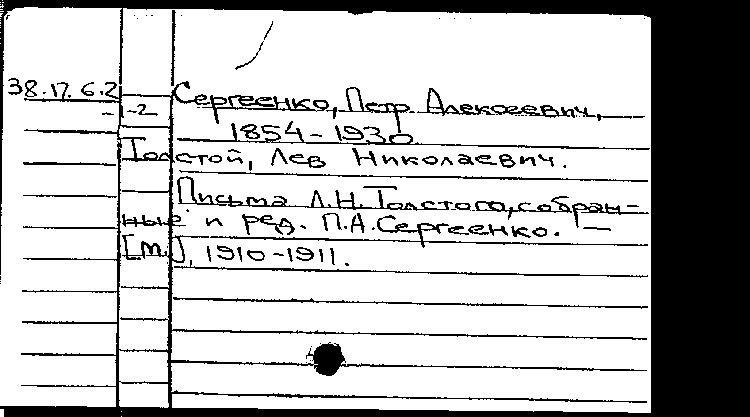 38.17.6.2 Сергеенко, Петр Алексеевич,
-1-2 1854-1930
Толстой, Лев Николаевич.
Письма Л.Н.Толстого, собран-
ные и ред. П.А.Сергеенко. —
[М.], 1910-1911.